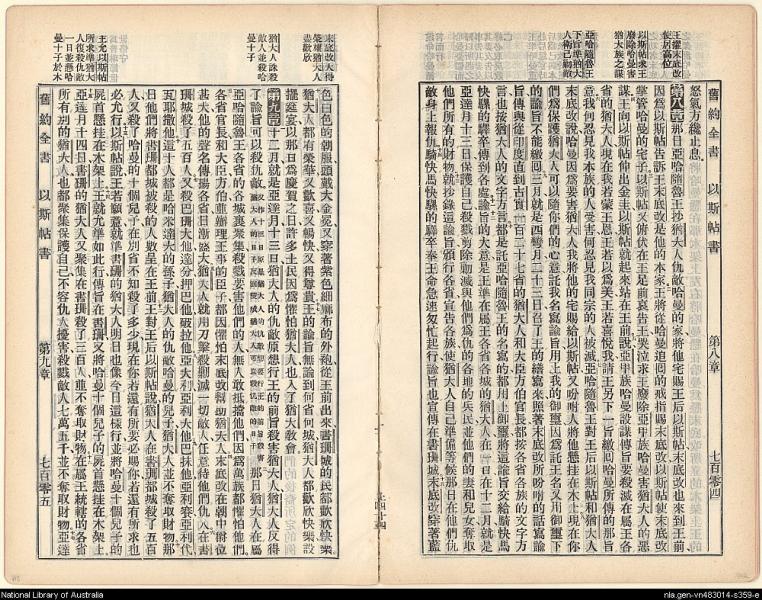 舊約全書 以斯帖書 第八章 七百零四
王擢末底改
使居高位
以斯帖求王
廢除哈曼害
猶大族之謀
亞哈隨魯王
下旨準猶大
人衛己勦敵
怒氣方纔止息
第八章 那日亞哈隨魯王抄猶大人仇敵哈曼的家將他宅賜王后以斯帖末底改也來到王前
因爲以斯帖告訴王末底改是他的本家王將從哈曼追回的戒指賜末底改以斯帖使末底改
掌管哈曼的宅子以斯帖又俯伏在王足前哀告王哭泣求王廢除亞甲族哈曼害猶大人的惡
謀王向以斯帖伸出金圭以斯帖就起來站在王前說亞甲族哈曼設謀傳旨要殺滅在屬王各
省的猶大人現在我若蒙王恩王若以爲美王若喜悅我請王另下一旨繳回哈曼所傳的那旨
意我何忍見我本族的人受害何忍見我同宗的人被滅亞哈隨魯王對王后以斯帖和猶大人
末底改說哈曼因爲要害猶大人我將他的宅賜給以斯帖又吩咐人將他懸挂在木上現在你
們爲保護猶大人可以隨你們的心意託我名寫諭旨用上我的御璽因爲託王名又用御璽下
的諭旨不能繳回三月就是西彎月二十三日召了王的繕寫來照著末底改所吩咐的話寫諭
旨傳與從印度直到古實一百二十七省的猶大人和大臣方伯官長都按各省各族的文字方
言也按猶大人的文字方言都是託亞哈隨魯王的名寫的都用上御璽將這諭旨交給騎快馬
快騾的驛卒傳到各處諭旨的大意是王準在屬王各省各城的猶大人在一日在十二月就是
亞達月十三日保護自己殺戮剪除勦滅與他們爲仇的各地的兵民並他們的妻和兒女奪取
他們所有的財物就抄錄這諭旨頒行各省宣告各族使猶大人自己準備等候那日在他們仇
敵身上報仇騎快馬快騾的驛卒奉王命急速匆忙起行諭旨也宣傳在書珊城末底改穿著藍
末底改大得
榮耀猶大人
盡歡欣
猶大人誅殺
敵人並殺哈
曼十子
王允以斯帖
所求準猶大
人復殺仇敵
一日並懸哈
曼十子於木
色白色的朝服頭戴大金冕又穿著紫色細麻布的外袍從王前出來書珊城的民都歡欣快樂
猶大人都有榮華又歡喜又暢快又得尊貴王的諭旨無論到何省何城猶大人都歡欣快樂設
擺筵宴以那日爲慶賀之日許多土民因爲懼怕猶大人也入了猶大教會
第九章 十二月就是亞達月十三日猶大人的仇敵原想行王的前旨殺害猶大人猶大人反得
亞哈隨魯王各省的各城裏聚集殺戮要害他們的人無人敢抵擋他們因爲萬族都懼怕他們
各省官長和大臣方伯並辦理王事的臣子都因懼怕末底改幫助猶大人末底改在朝中爵位
甚大他的聲名傳揚各省日漸盛大猶大人就用刀擊殺勦滅一切敵人任意待他們仇人在書
珊城殺了五百人又殺巴珊大他達分押巴他破拉他亞大利亞利大他巴抹他亞利賽亞利代
瓦耶撒他這十人都是哈米達大的孫子猶大人的仇敵哈曼的兒子猶大人並不奪取財物那
日他們將書珊都城被殺的人數呈在王前王對王后以斯帖說猶大人在書珊都城殺了五百
人又殺了哈曼的十個兒子在別省不知殺了多少現在你若還有所要必賜你若還有所求也
必允行以斯帖說王若願意就準書珊的猶大人明日也像今日這樣行並將哈曼十個兒子的
屍首懸挂在木架上王就允準如此行傳旨在書珊又將哈曼十個兒子的屍首懸挂在木架上
亞達月十四日書珊的猶大人又聚集在書珊殺了三百人並不奪取財物在屬王統轄的各省
所有別的猶大人也都聚集保護自己不容仇人擾害殺戮敵人七萬五千並不奪取財物亞達
舊約全書 以斯帖書 第九章 七百零五
National Library of Australia
nla.gen-vn483014-s359-e